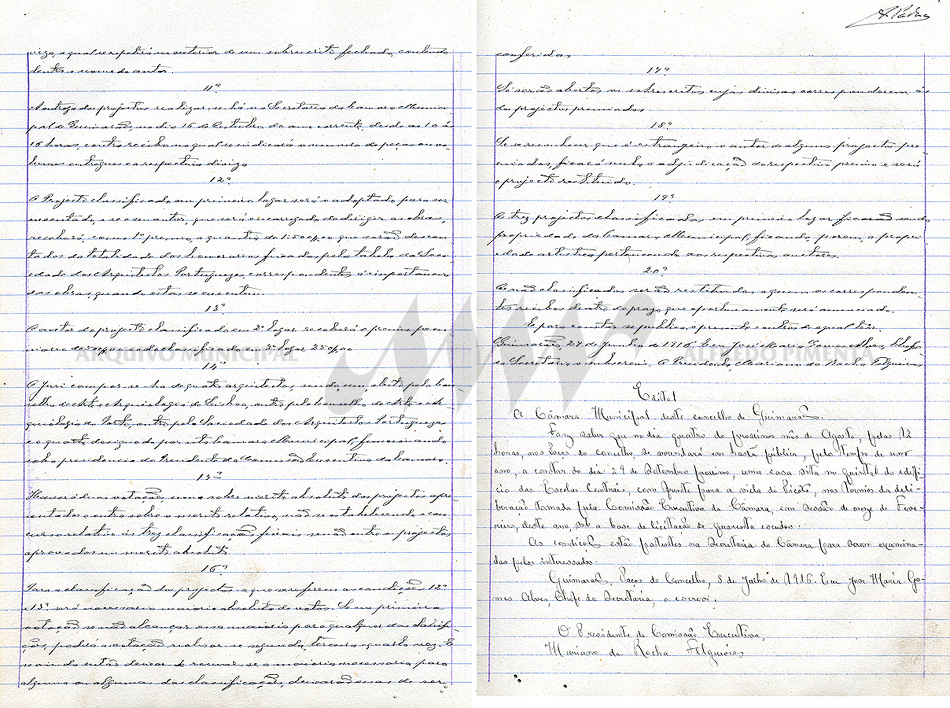 viza, a qual se repetirá no exterior de um sobrescrito fechado, contendo
dentro o nome do autor.
11º
A entrega dos projectos realizar-se há na Secretaria da Camara Munici-
pal de Guimarães, no dia 16 de Outubro do ano corrente, desde as 10 ás
16 horas, contra recibo na qual se indicará o numero de peças ou vo-
lumes entregues e a respectiva diviza
12º
O Projecto classificado em primeiro lugar será o adoptado para ser
executado, e o seu autor, que será encarregado de dirigir as obras,
receberá, como 1º premio, a quantia de 1.500$00 que serão descon-
tados da totalidade dos honorarios fixados pela tabela da Soci-
edade dos Arquitectos Portuguezes, correspondentes á importancia
das obras, quando estas se executem.
13º
O autor do projecto classificado em 2º lugar receberá o premio pecu-
niario de $00 e o do classificado em 3º lugar 250$00
14º
O Juri compor-se-ha de quatro arquitectos, sendo um, eleito pelo Con-
selho de Arte e Arqueologia de Lisboa, outro pelo Conselho de Arte e Ar-
queologia do Porto, outro pela Sociedade dos Arquitectos Portuguezes
e o quarto designado por esta Camara Municipal, funcionando
sob a presidencia do Presidente da Comissão Executiva da Camara.
15º
Haverá duas votações, uma sobre merito absoluto dos projectos apre-
sentados, outra sobre o merito relativo, não se estabelecendo o con-
curso relativo ás trez classificações fixais senão entre os projectos
aprovados em merito absoluto.
16º
Para a classificação dos projectos a que se referem as condições 12ª
e 13ª será necessario maioria absoluta de votos. Se na primeira
votação se não alcançar essa maioria para qualquer das classifica-
ções, poderá a votação realisar-se segunda, terceira e quarta vez. E
se ainda então deixar de reunir-se a maioria necessaria para
alguma ou algumas das classificações, deixarão essas de ser
conferidas.
17º
Só serão abertos os sobrescritos cujas divisas corresponderem ás
dos projectos premiados
18º
Se se reconhecer que é estrangeiro o autor de algum projecto pre-
miado, ficará nula a adjudicação do respectivo premio e será
o projecto restituido.
19º
Os trez projectos classificados em primeiro lugar ficarão sendo
propriedade da Camara Municipal, ficando, porem, a propri-
edade artistica pertencendo aos respectivos autores.
20º
Os não classificados serão restituidos a quem os corresponden-
tes recibos dentro do prazo que oportunamente será anunciado.
E para constar se publica o presente e outros de igual teor.
Guimarães, 27 de Junho de 1916. E eu José Maria Gomes Alves, Chefe
da Secretaria o subscrevi. O Presidente, Mariano da Rocha Felgueiras
Edital
A Câmara Municipal dêste concelho de Guimarães:
Faz saber que no dia quatro do proximo mês de Agosto, pelas 12
horas, nos Paços do Concelho, se arrendará em hasta pública, pelo tempo de um
ano, a contar do dia 29 de Setembro proximo, uma casa sita no quintal do edifi-
cio das Escolas Centrais, com frente para a viela do Picoto, nos termos da deli-
beração tomada pela Comissão Executiva da Câmara, em sessão de onze de Feve-
reiro, deste ano, sob a base de licitação de quarenta escudos.
As condições estão patentes na Secretaria da Câmara para serem examina-
das pelos interessados.
Guimarães, Paços do Concelho, 8 de Julho de 1916. E eu José Maria Go-
mes Alves, Chefe da Secretaria, o escrevi.
O Presidente da Comissão Executiva,
Mariano da Rocha Felgueiras
ARQUIVO MUNICIPAL ALFREDO PIMENTA